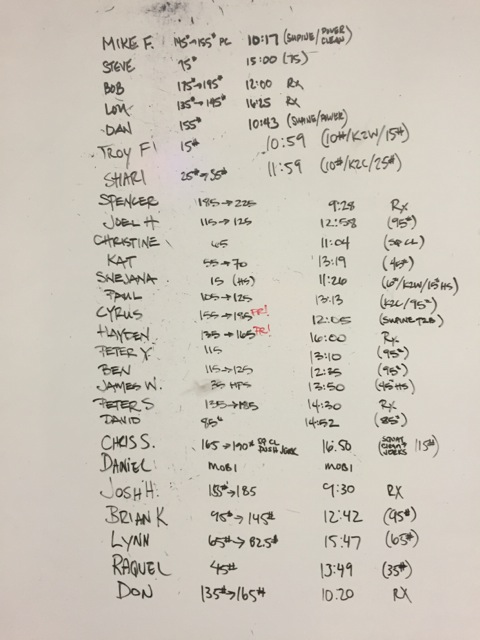 MIKE F. 145#→155# PC 10:17 (SUPINE/POWER CLEAN)
STEVE 75# 15:00 (75)
BOB 175#→195# 12:00 Rx
135#→145# 16:25 Rx
DAN 155# 10:43 (SUPINE/POWER)
TROY F! 15# 10:59 (10#/K2W/15#)
SHARI 25#→35# 11:59 (10#/K2C/25#)
SPENCER 185→225 9:28 Rx
JOEL H 115→125 12:58 (95#)
CHRISTINE 65 11:04
KAT 55→70 13:19 (45#)
SNEJANA 15 (HS) 11:26 (6#/K2W/15#HS)
PAUL 105→125 13:13 (K2C/95#)
CYRUS 155→185 PR! 12:05 (SUPINE T2B)
HAYDEN 135→165 PR! 16:00 Rx
PETER Y. 115 13:10 (95#)
BEN 115→125 12:35 (95#)
JAMES W. 35 HPS 13:50 (45#HS)
PETER S 135→185 14:30 Rx
DAVID 85# 14:52 (85#)
CHRIS S. 165→190# SQ CL PUSH JERK 16.50 (SQUAT CLEANS JERKS /15#)
DANIEL MOBI MOBI
JOSH H. 185→185 9:30 RX
BRIAN K 95#→145# 12:42 (95#)
LYNN 65#→82.5# 15:47 (65#)
RAQUEL 45# 13:49 (35#)
DON 135#→165# 10.20 RX